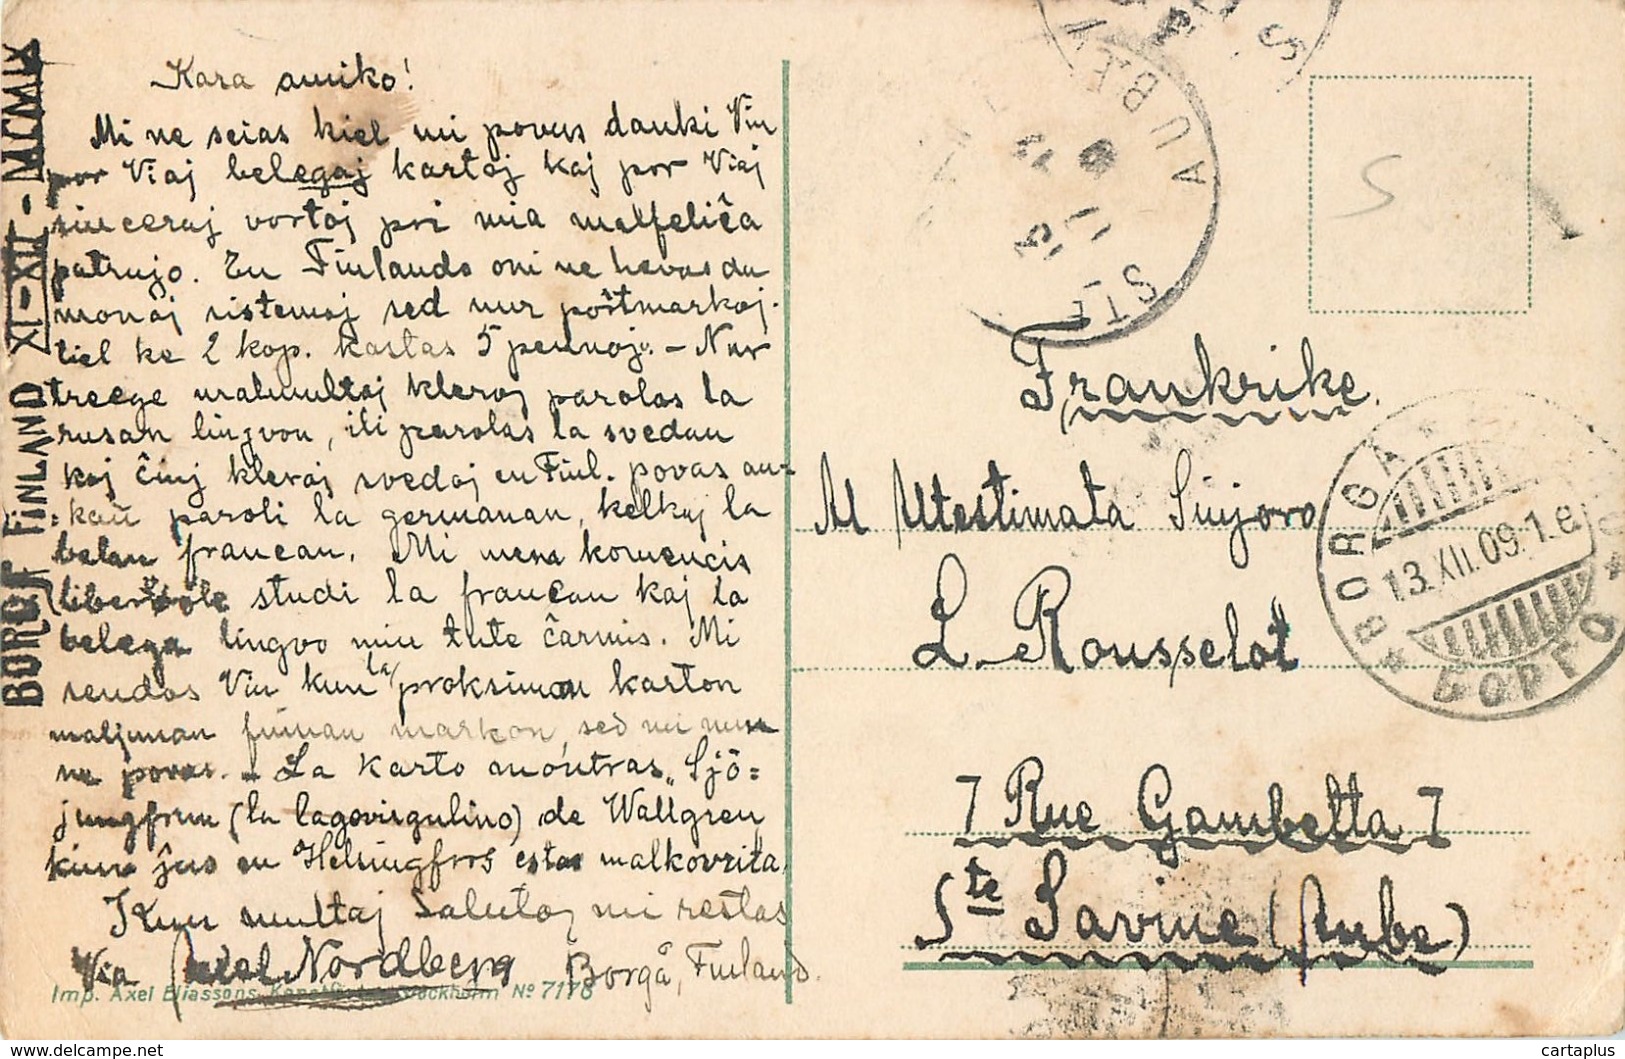 BORGÅ FINLAND XI-XII-MCMIX
Kara amiko!
Mi ne scias kiel mi povus danki Vin
por Viaj belegaj kartoj kaj por Viaj
sinceraj vortoj pri mia malfeliĉa
patrujo. En Finlando oni ne havas du
monaj sistemoj sed nur poŝtmarkoj.
tiel ke 2 kop. kostas 5 pennojn. – Nur
treege malmultaj kleraj parolas la
rusan lingvon, ili parolas la svedan
kaj ĉiuj kleraj svedoj en Finl. povas an-
kaŭ paroli la germanan, kelkaj la
belan francan. Mi mem komencis
libervole studi la francan kaj la
belega lingvo min tute ĉarmis. Mi
sendos Vin kun la proksiman karton
maljunan finnan markon, sed mi nun
ne povas. – La karto montras „Sjö=
jungfrun (la lagovirgulino) de Wallgren
kiun ĵus en Helsingfors estas malkovrita.
Kun multaj salutoj mi restas
Via Axel Nordberg Borgå, Finland.
Imp. Axel Eliassons Konstförlag Stockholm No 7178
STE AUBE
13 12 09
S
1
Frankrike.
Al Altestimata Sinjoro
L. Rousselot
7 Rue Gambetta 7
Ste Savine (Aube)
BORGÅ
13.XII.09.1.e
БОРГО
cartaplus